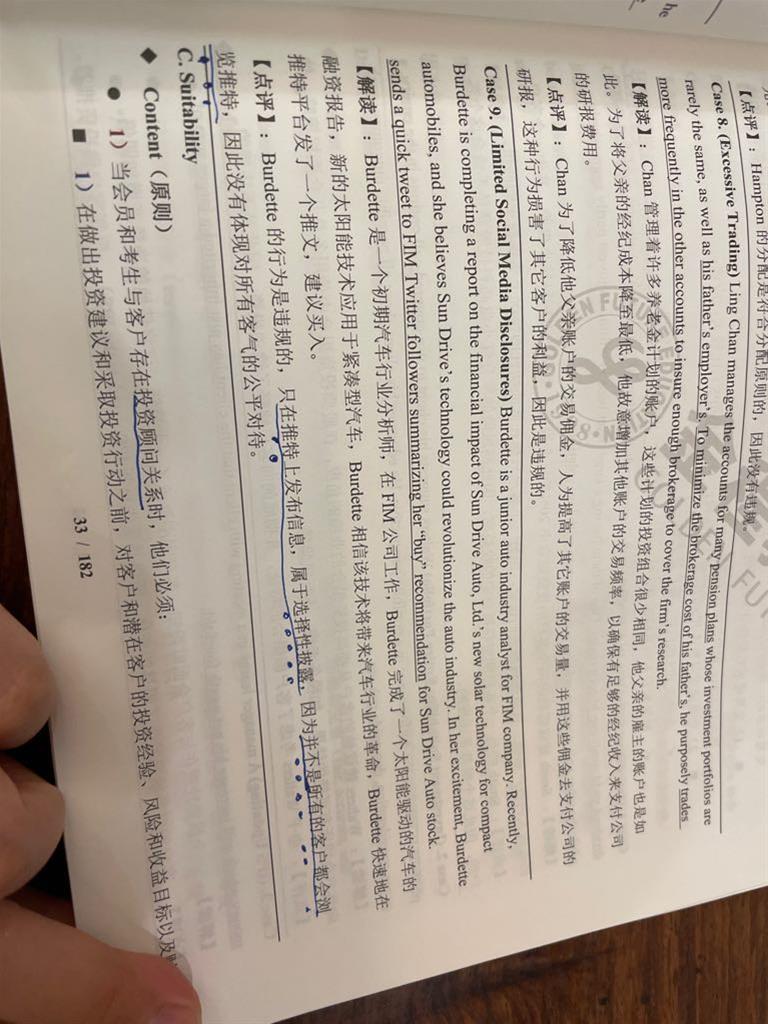 【点评】: Hampton 的分配是符合分配原则的，因此没有违规。
Case 8. (Excessive Trading) Ling Chan manages the accounts for many pension plans whose investment portfolios are
rarely the same, as well as his father's employer's. To minimize the brokerage cost of his father's, he purposely trades
more frequently in the other accounts to insure enough brokerage to cover the firm's research.
【解读】: Chan 管理着许多养老金计划的账户，这些计划的投资组合很少相同，他父亲的雇主的账户也是如
此。为了将父亲的经纪成本降至最低，他故意增加其他账户的交易频率，以确保有足够的经纪收入来支付公司
的研报费用。
【点评】: Chan 为了降低他父亲账户的交易佣金，人为提高了其它账户的交易量，并用这些佣金去支付公司的
研报，这种行为损害了其它客户的利益，因此是违规的。
Case 9. (Limited Social Media Disclosures) Burdette is a junior auto industry analyst for FIM company. Recently,
Burdette is completing a report on the financial impact of Sun Drive Auto, Ltd.'s new solar technology for compact
automobiles, and she believes Sun Drive's technology could revolutionize the auto industry. In her excitement, Burdette
sends a quick tweet to FIM Twitter followers summarizing her "buy" recommendation for Sun Drive Auto stock.
【解读】: Burdette 是一个初期汽车行业分析师，在 FIM 公司工作，Burdette 完成了一个太阳能驱动的汽车的
融资报告，新的太阳能技术应用于紧凑型汽车，Burdette 相信该技术将带来汽车行业的革命，Burdette 快速地在
推特平台发了一个推文，建议买入。
【点评】: Burdette 的行为是违规的，只在推特上发布信息，属于选择性披露，因为并不是所有的客户都会浏
览推特，因此没有体现对所有客气的公平对待。
C. Suitability
◆ Content（原则）
● 1）当会员和考生与客户存在投资顾问关系时，他们必须：
■ 1）在做出投资建议和采取投资行动之前，对客户和潜在客户的投资经验、风险和收益目标以及
33 / 182